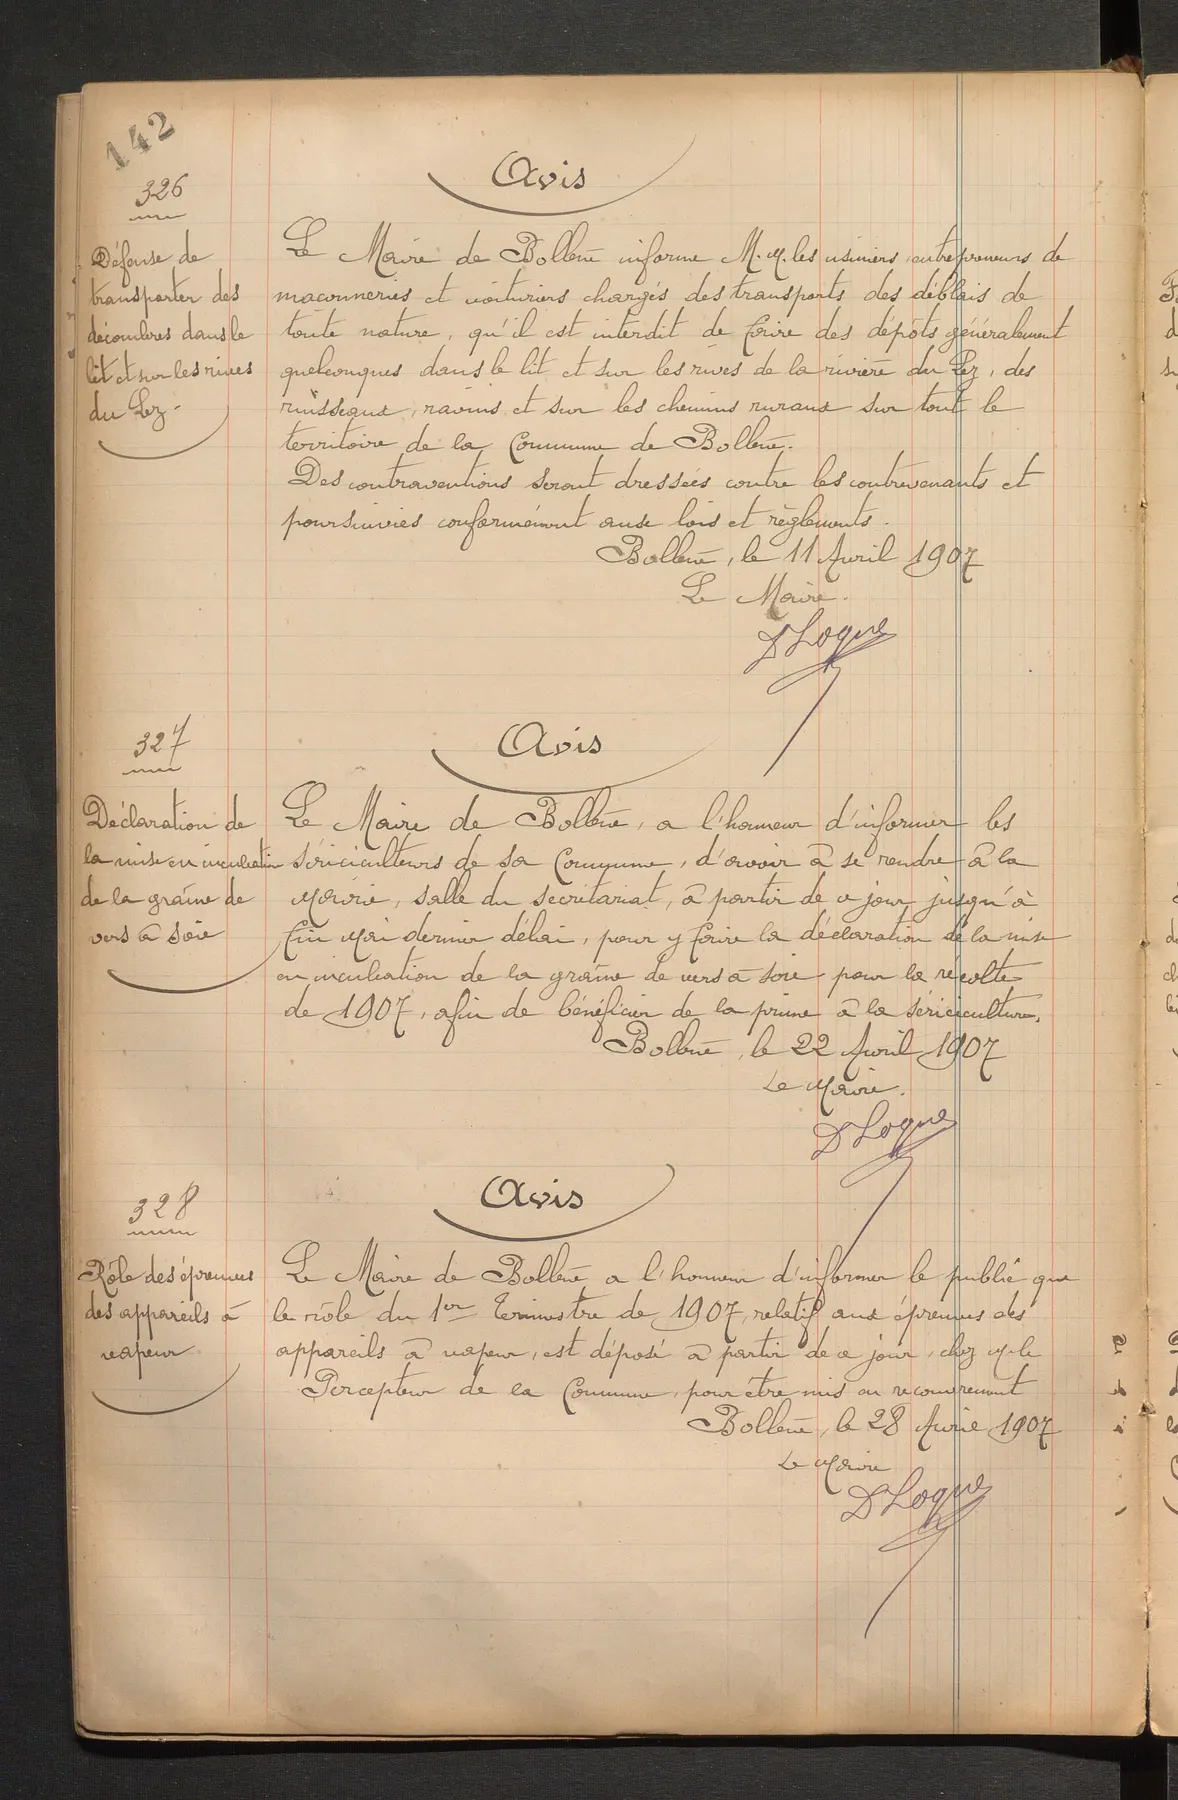 142
326
Avis
Défense de
transporter des
décombres dans le
lit et sur les rives
du Lez.
Le Maire de Bollène informe M. M. les usiniers, entrepreneurs de
maçonneries et voituriers chargés des transports des déblais de
toute nature, qu'il est interdit de faire des dépôts généralement
quelconques dans le lit et sur les rives de la rivière du Lez, des
ruisseaux, ravins et sur les chemins ruraux sur tout le
territoire de la Commune de Bollène.
Des contraventions seront dressées contre les contrevenants et
poursuivies conformément aux lois et règlements.
Bollène, le 11 Avril 1907
Le Maire.
D Loque
327
Avis
Déclaration de
la mise en incubation
de la graine de
vers à soie
Le Maire de Bollène, a l'honneur d'informer les
sériciculteurs de sa Commune, d'avoir à se rendre à la
Mairie, salle du secrétariat, à partir de ce jour jusqu'à
fin Mai dernier délai, pour y faire la déclaration de la mise
en incubation de la graine de vers à soie pour la récolte
de 1907, afin de bénéficier de la prime à la sériciculture.
Bollène, le 22 Avril 1907
Le Maire.
D Loque
328
Avis
Rôle des épreuves
des appareils à
vapeur
Le Maire de Bollène a l'honneur d'informer le public que
le rôle du 1er Trimestre de 1907, relatif aux épreuves des
appareils à vapeur, est déposé à partir de ce jour, chez M. le
Percepteur de la Commune, pour être mis en recouvrement
Bollène, le 28 Avril 1907
Le Maire
D Loque